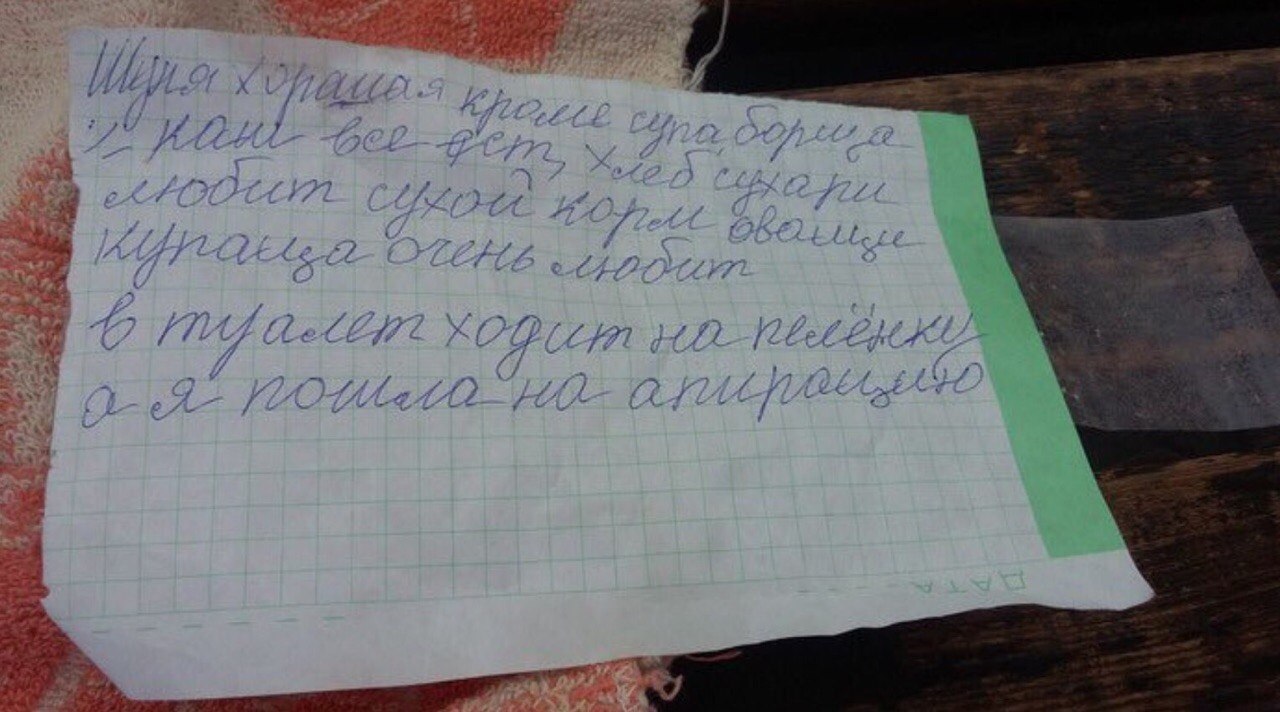 Шуля хорашая кроме супа, борща
и каш все ест, хлеб сухари
любит сухой корм оващи
купаца очень любит
в туалет ходит на пелёнку
а я пошла на апирацию
ДАТА